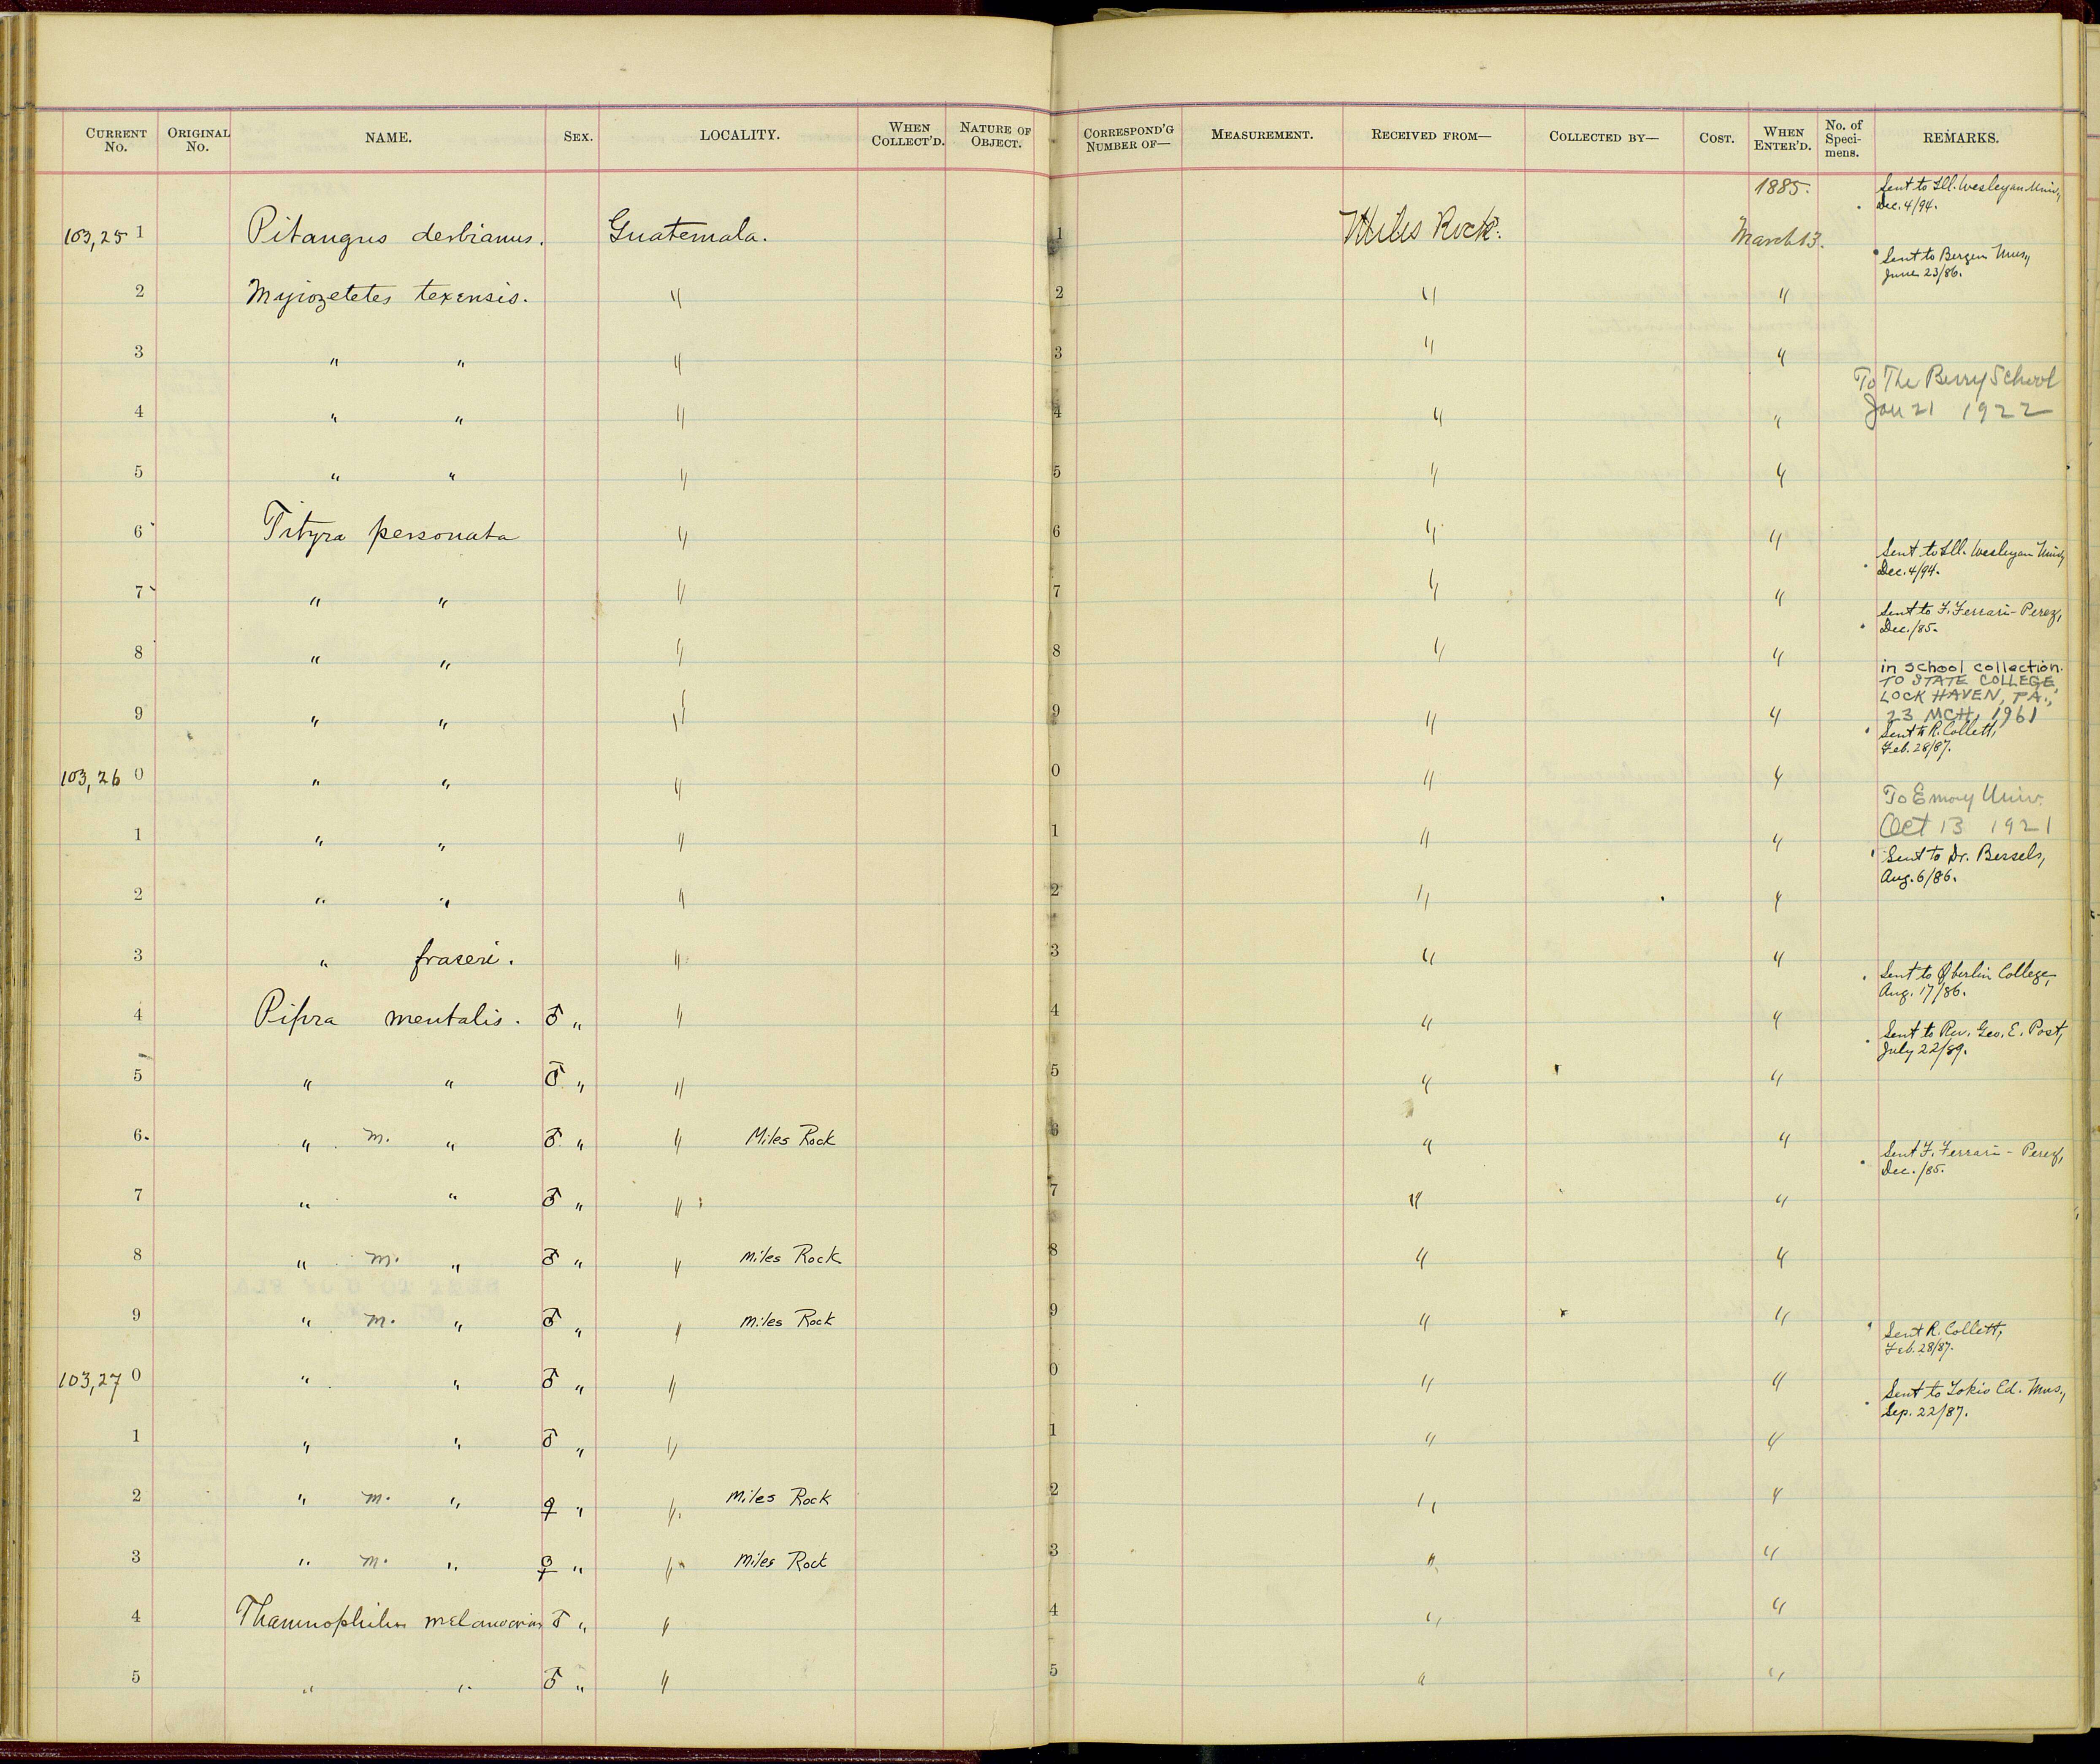 CURRENT No. ORIGINAL No. NAME. SEX. LOCALITY. WHEN COLLECT'D. NATURE OF OBJECT. CORRESPOND'G NUMBER OF— MEASUREMENT. RECEIVED FROM— COLLECTED BY— COST. WHEN ENTER'D. No. of Speci- mens. REMARKS.
1885. Sent to Ill. Wesleyan Univ.,
Dec. 4/94.
103,25 1 Pitangus derbianus. Guatemala. 1 Miles Rock. March 13.
Sent to Bergen Mus.,
June 23/86.
2 Myiozetetes texensis. " 2 " "
3 " " " 3 " "
To The Berry School
Jan 21 1922
4 " " " 4 " "
5 " " " 5 " "
6 Tityra personata " 6 " "
Sent to Ill. Wesleyan Univ,
Dec. 4/94.
7 " " " 7 " "
Sent to F. Ferrari-Perez,
Dec./85.
8 " " " 8 " "
in school collection.
TO STATE COLLEGE
LOCK HAVEN, PA.,
23 MCH, 1961
9 " " " 9 " "
Sent to R. Collett,
Feb. 28/87.
103,26 0 " " " 0 " "
To Emory Univ.
Oct 13 1921
1 " " " 1 " "
Sent to Dr. Bessels,
Aug. 6/86.
2 " " " 2 " "
3 " fraseri. " 3 " "
Sent to Oberlin College,
Aug. 17/86.
4 Pipra mentalis. ♂ " " 4 " "
Sent to Rev. Geo. E. Post,
July 22/89.
5 " " ♂ " " 5 " "
6. " m. " ♂ " " Miles Rock 6 " "
Sent F. Ferrari-Perez,
Dec./85.
7 " " ♂ " " 7 " "
8 " m. " ♂ " " Miles Rock 8 " "
9 " m. " ♂ " " Miles Rock 9 " "
Sent R. Collett,
Feb. 28/87.
103,27 0 " " ♂ " " 0 " "
Sent to Tokio Ed. Mus.,
Sep. 22/87.
1 " " ♂ " " 1 " "
2 " m. " ♀ " " Miles Rock 2 " "
3 " m. " ♀ " " Miles Rock 3 " "
4 Thamnophilus ♂ " " 4 " "
5 " " ♂ " " 5 " "